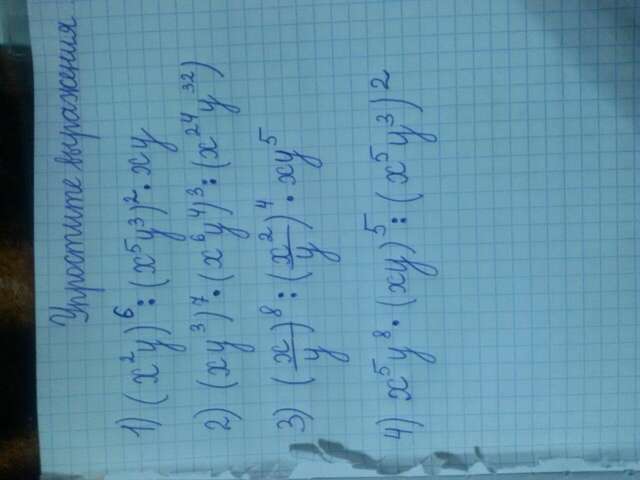 Упростите выражения.
1) (x²y)⁶ : (x⁵y³)² · xy
2) (xy³)⁷ · (x⁶y⁴)³ : (x²⁴y³²)
3) (x/y)⁸ : (x²/y)⁴ · xy⁵
4) x⁵y⁸ · (xy)⁵ : (x⁵y³)²